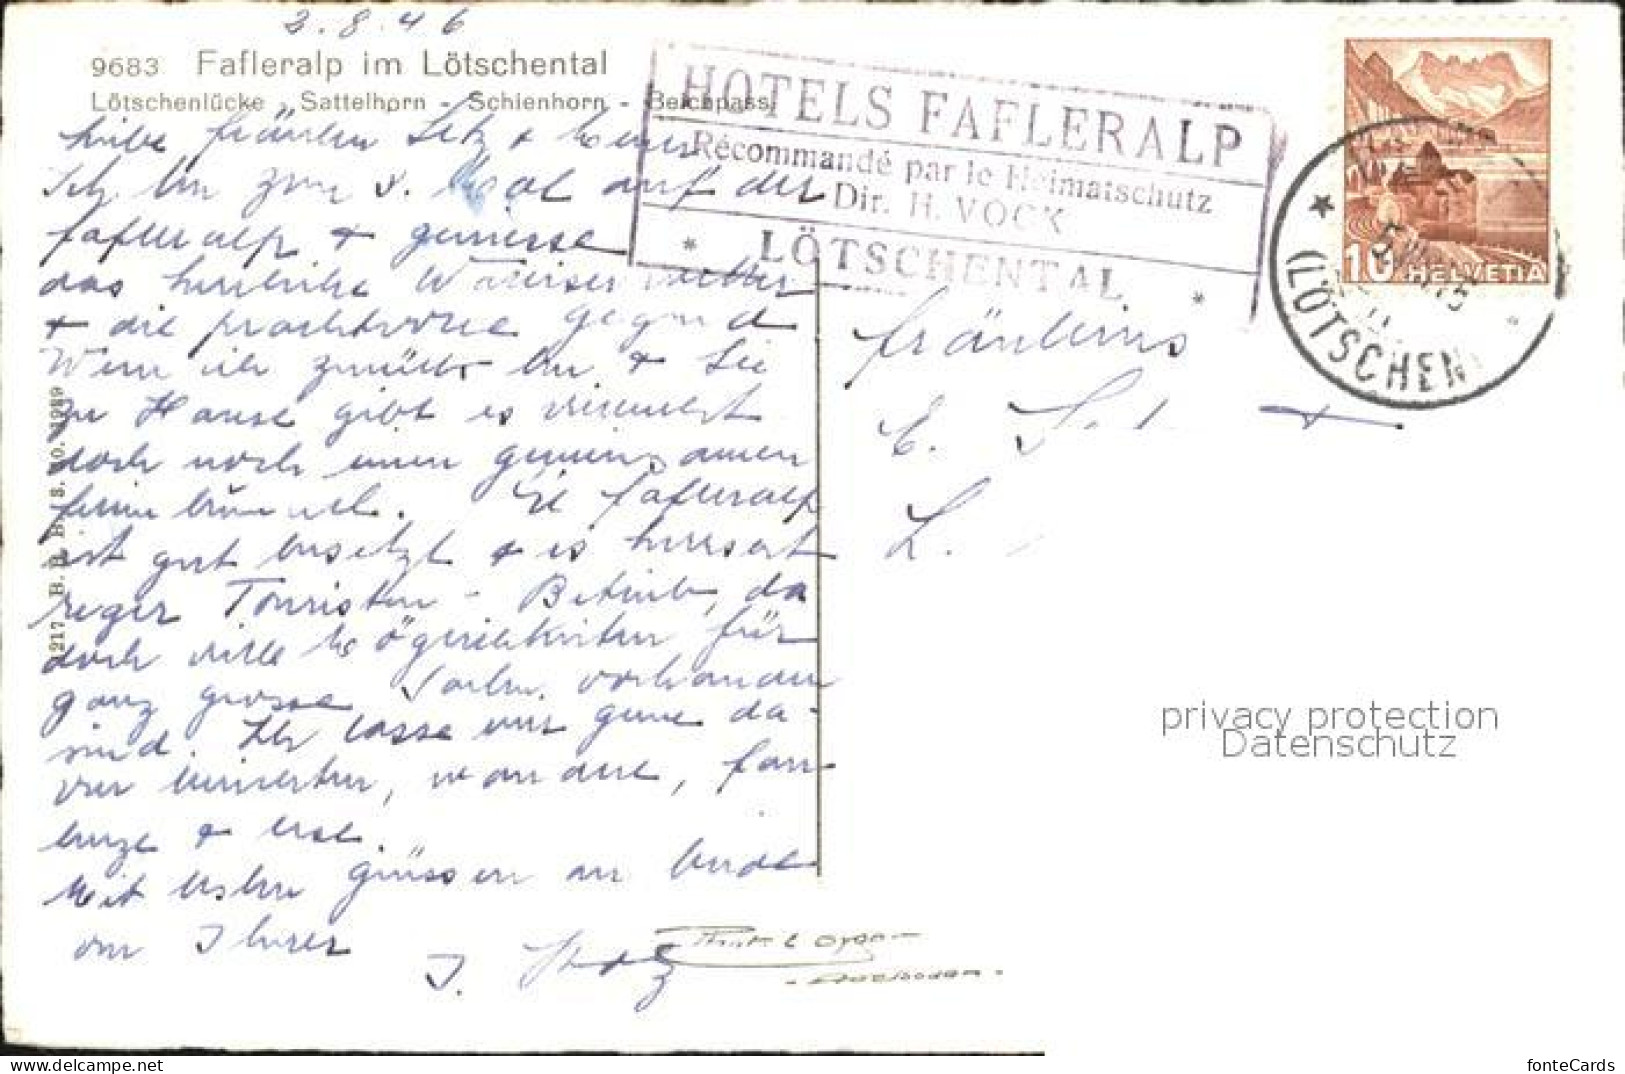 3.8.46
9683 Fafleralp im Lötschental
Lötschenlücke - Sattelhorn - Schienhorn - Beichpass
HOTELS FAFLERALP
Récommandé par le Heimatschutz
Dir. H. VOCK
* LÖTSCHENTAL *
10 HELVETIA
(LÖTSCHEN
Liebe Fräulein
Ich bin zum 5. Mal auf der
Fafleralp & geniesse
das herrliche Walliserwetter
& die prachtvolle Gegend
Wenn ich zurück bin & Sie
zu Hause gibt es vielleicht
doch noch einen gemeinsamen
. Die Fafleralp
ist gut besetzt & es herrscht
reger Touristen-Betrieb, da
doch viele Möglichkeiten für
ganz grosse Touren vorhanden
sind. Ich lasse mir gerne da-
von berichten, wandere, fau-
lenze & lese.
Mit lieben Grüssen an beide
von Ihrer
Fräuleins
E.
L.
1217 B. R. B. 3. No. 1989
privacy protection
Datenschutz
fonteCards
www.delcampe.net